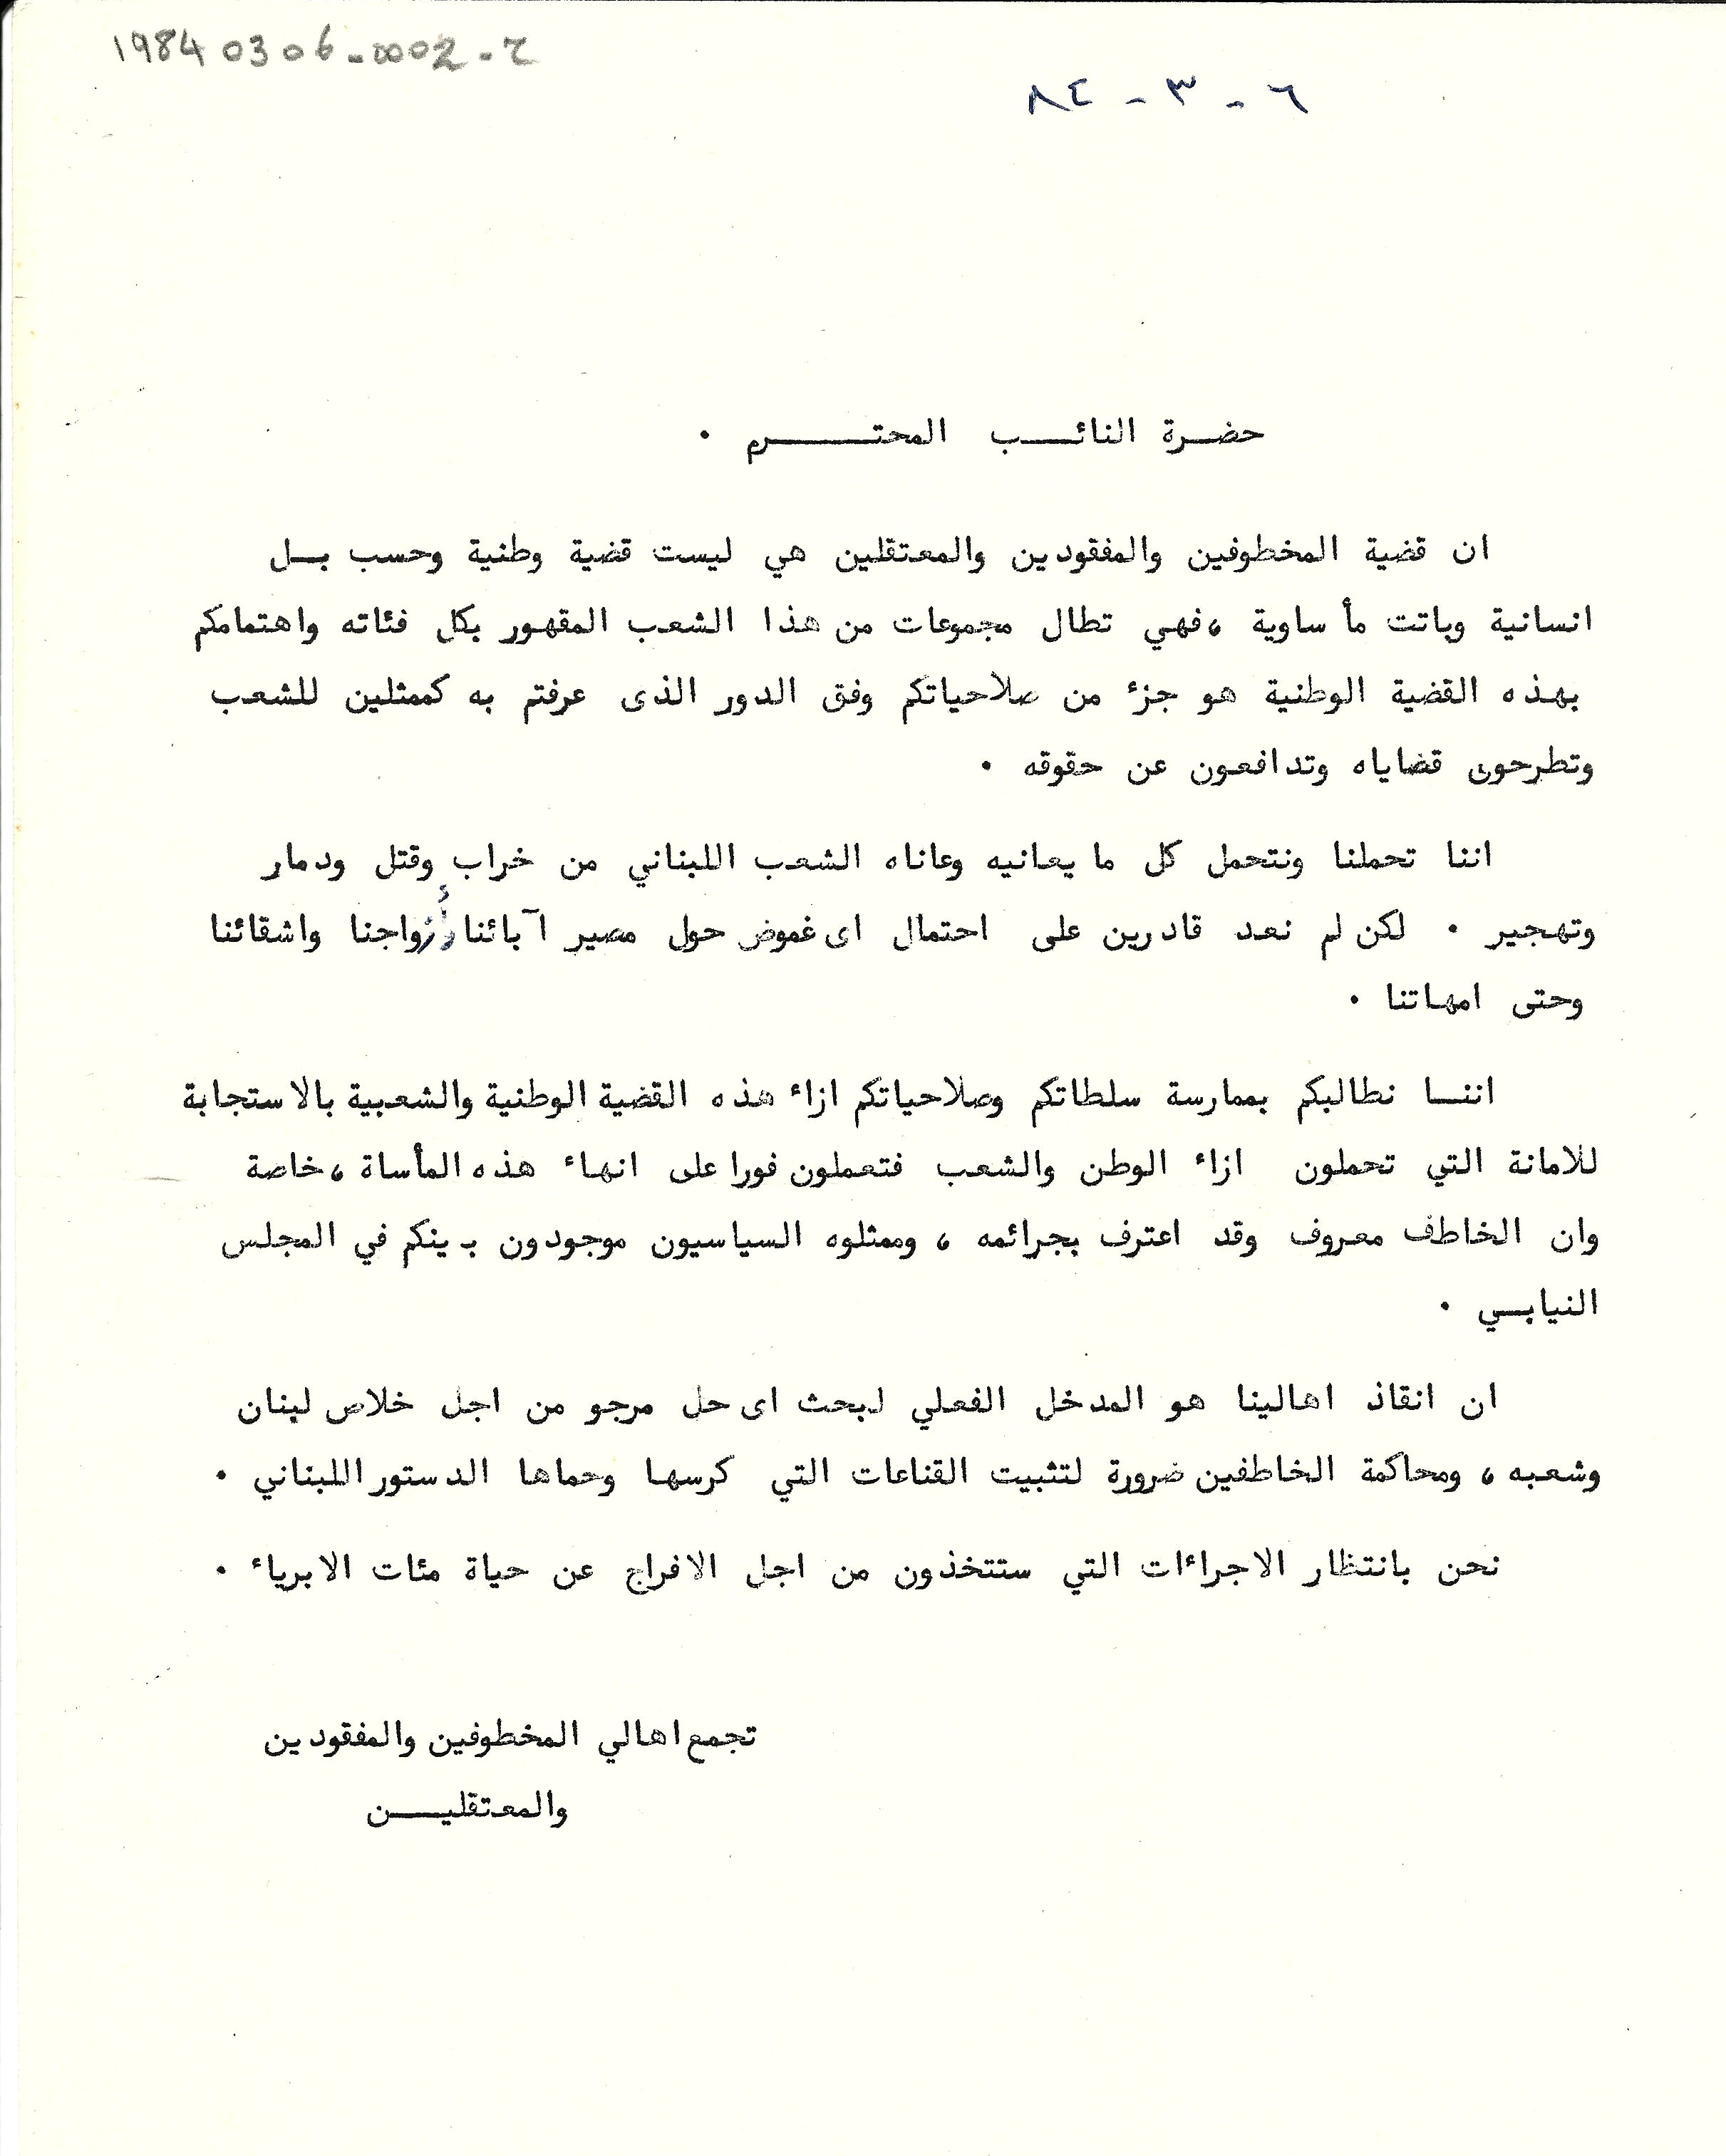 19840306-0002-ح
٦ - ٣ - ٨٤
حضرة النائب المحترم .
ان قضية المخطوفين والمفقودين والمعتقلين هي ليست قضية وطنية وحسب بل
انسانية وباتت مأساوية ، فهي تطال مجموعات من هذا الشعب المقهور بكل فئاته واهتمامكم
بهذه القضية الوطنية هو جزء من صلاحياتكم وفق الدور الذى عرفتم به كممثلين للشعب
وتطرحون قضاياه وتدافعون عن حقوقه .
اننا تحملنا ونتحمل كل ما يعانيه وعاناه الشعب اللبناني من خراب وقتل ودمار
وتهجير . لكن لم نعد قادرين على احتمال اى غموض حول مصير آبائنا وأزواجنا واشقائنا
وحتى امهاتنا .
اننا نطالبكم بممارسة سلطاتكم وصلاحياتكم ازاء هذه القضية الوطنية والشعبية بالاستجابة
للامانة التي تحملون ازاء الوطن والشعب فتعملون فورا على انهاء هذه المأساة ، خاصة
وان الخاطف معروف وقد اعترف بجرائمه ، وممثلوه السياسيون موجودون بينكم في المجلس
النيابي .
ان انقاذ اهالينا هو المدخل الفعلي لبحث اى حل مرجو من اجل خلاص لبنان
وشعبه ، ومحاكمة الخاطفين ضرورة لتثبيت القناعات التي كرسها وحماها الدستور اللبناني .
نحن بانتظار الاجراءات التي ستتخذون من اجل الافراج عن حياة مئات الابرياء .
تجمع اهالي المخطوفين والمفقودين
والمعتقلين